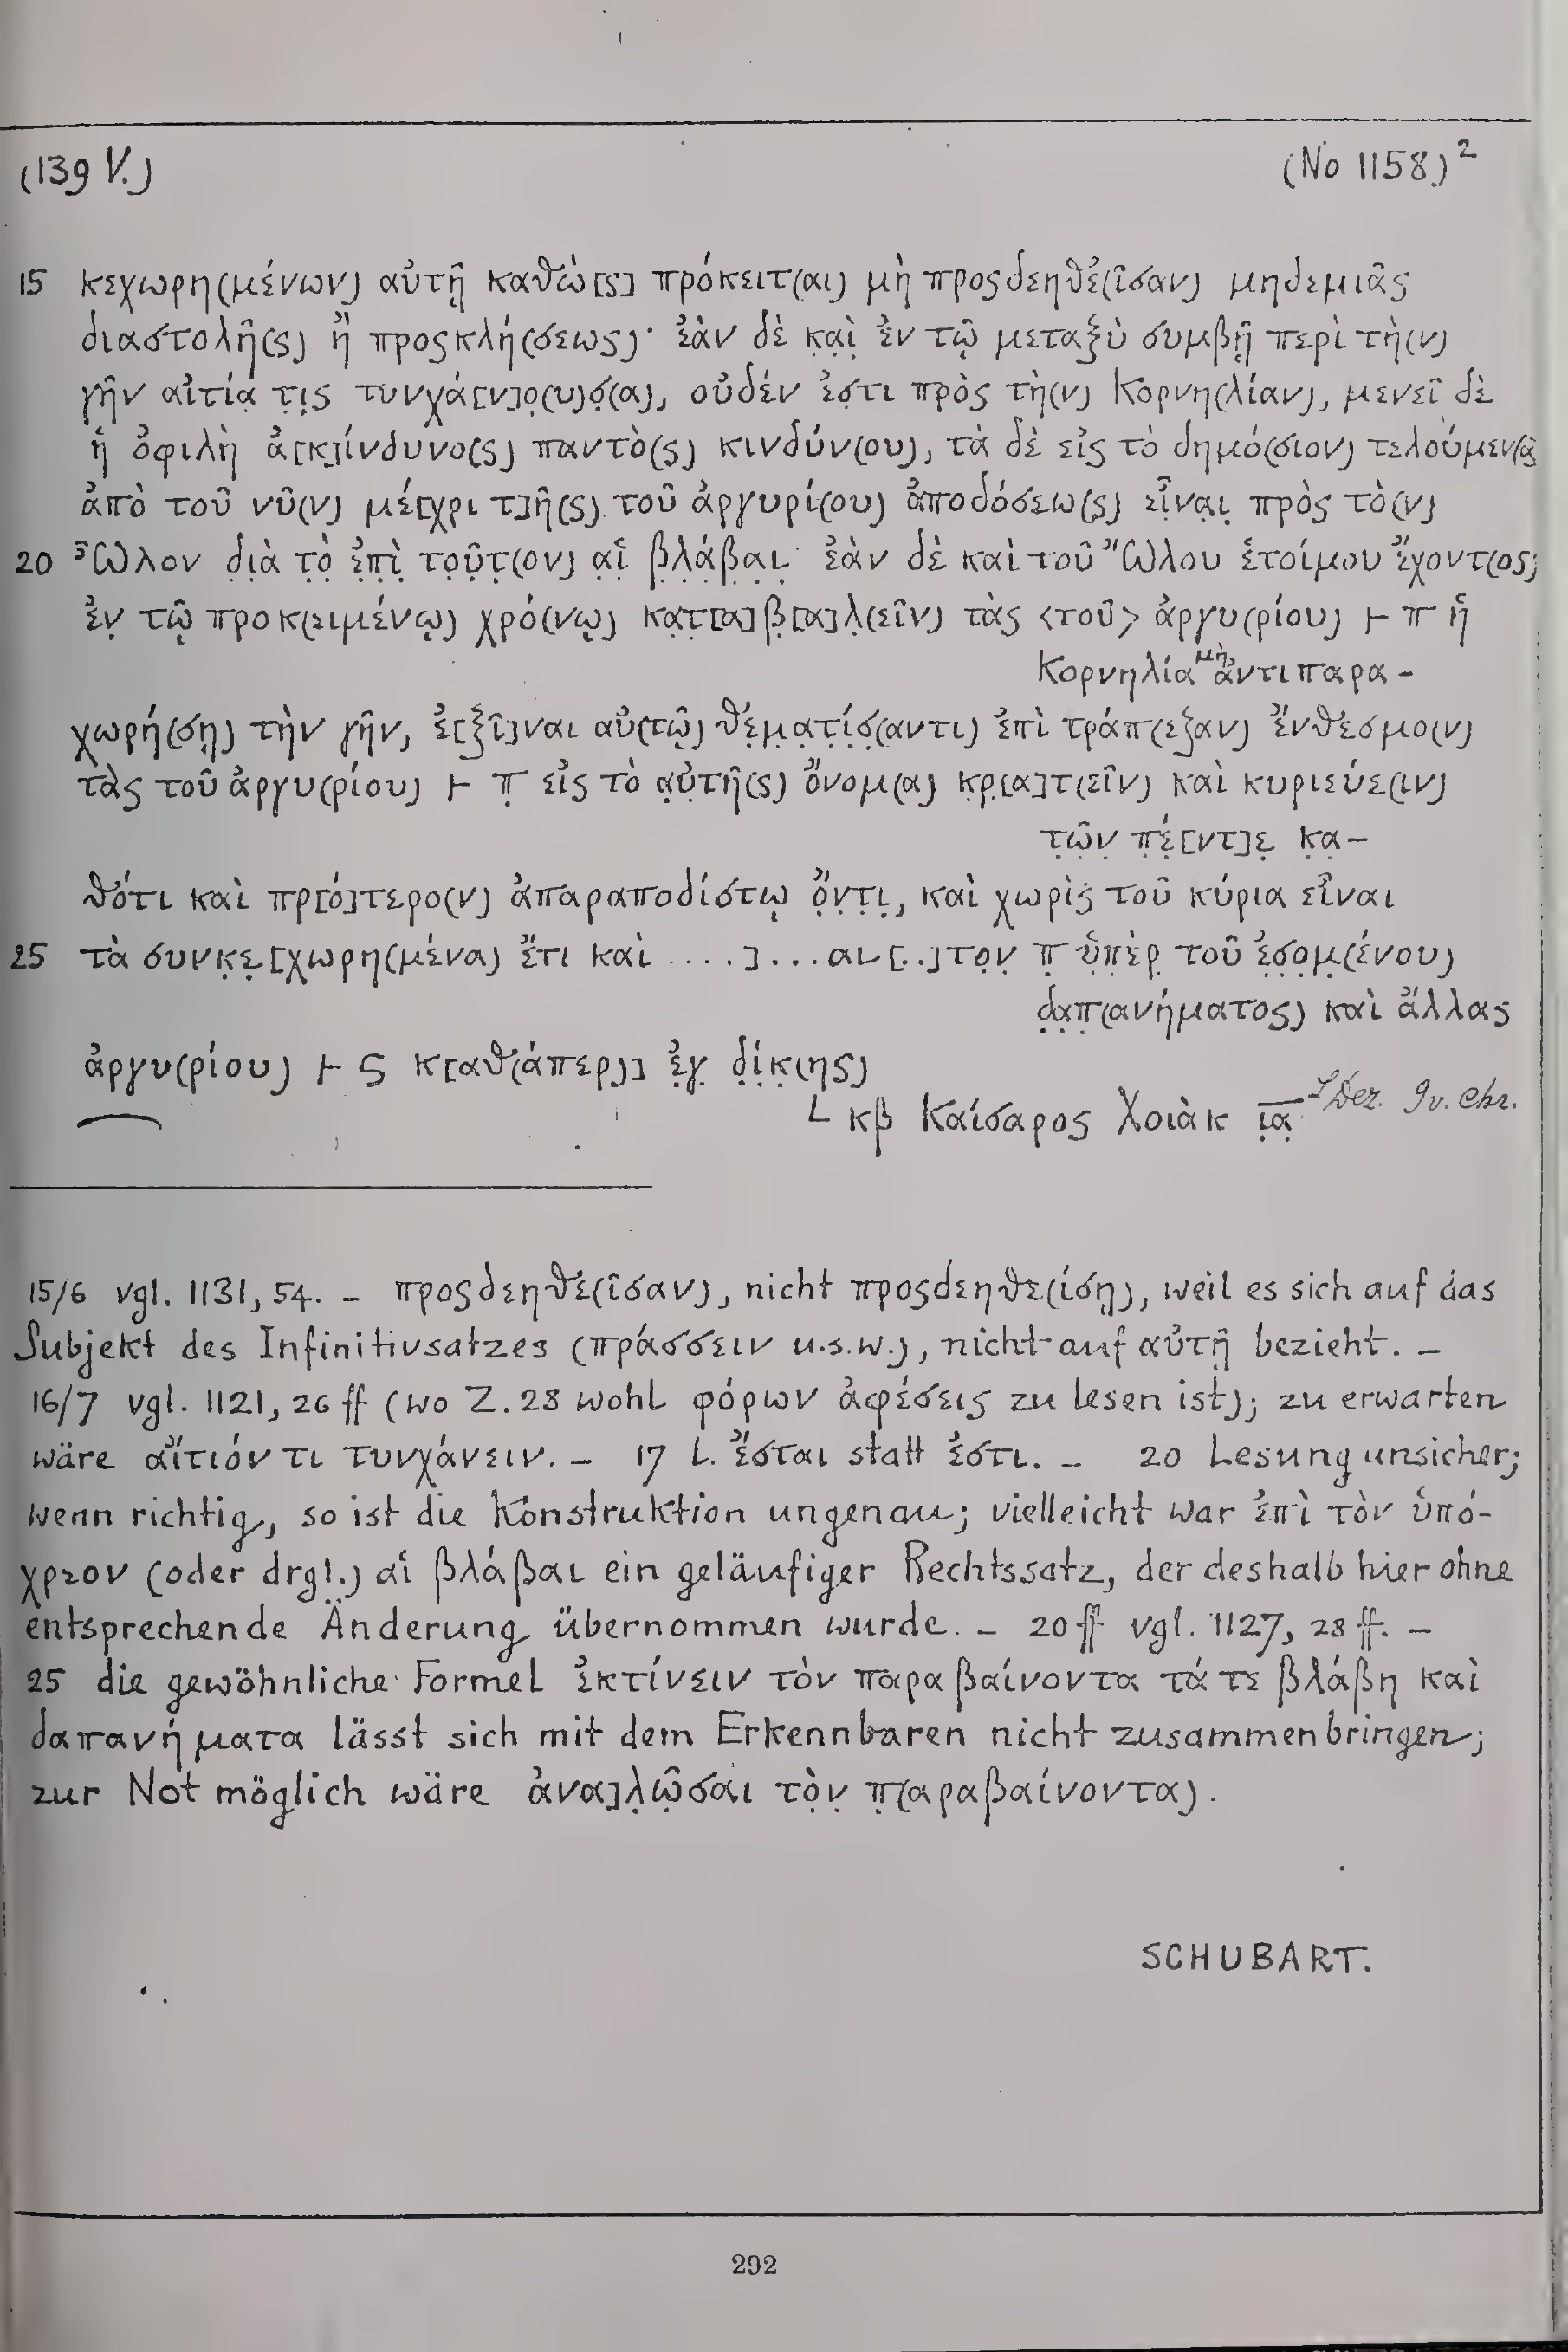 (139 V.)
(No 1158)²
15 κεχωρη(μένων) αὐτῇ καθὼ[ς] πρόκειτ(αι) μὴ προςδεηθε(ῖσαν) μηδεμιᾶς
διαστολῆ(ς) ἢ προςκλή(σεως)· ἐὰν δὲ κ̣α̣ὶ̣ ἐν τῷ μεταξὺ συμβῇ̣ περὶ τὴ(ν)
γῆν αἰτία̣ τ̣ι̣ς τυνχά[ν]ο̣(υ)σ̣(α), οὐδέν ἐσ̣τι πρὸς τὴ(ν) Κορνη(λίαν), μενεῖ δὲ
ἡ̣ ὀφιλὴ ἀ[κ]ίνδυνο(ς) παντὸ(ς) κινδύν(ου), τὰ δὲ εἰς τὸ δημό(σιον) τελούμεν(α)
ἀπὸ τοῦ νῦ(ν) μέ[χρι τ]ῆ(ς) τοῦ ἀργυρί(ου) ἀποδόσεω(ς) εἶ̣ν̣α̣ι̣ πρὸς τὸ(ν)
20 Ὦλον δ̣ι̣ὰ τ̣ὸ̣ ἐ̣π̣ὶ̣ τ̣ο̣ῦ̣τ̣(ον) α̣ἱ̣ β̣λ̣ά̣β̣α̣ι̣· ἐὰν δὲ καὶ τοῦ Ὤλου ἑτοίμου ἔχοντ(ος)
ἐν̣ τῷ προκ(ειμένῳ) χρό(νῳ) κ̣α̣τ̣[α]β̣[α]λ̣(εῖν) τὰς <τοῦ> ἀργυ(ρίου) ⊢ π ἡ
Κορνηλία μὴ̣ ἀντιπαρα-
χωρή(σῃ) τὴν γῆν, ἐ[ξῖ]ναι αὐ(τῷ) θ̣έ̣μ̣α̣τ̣ί̣σ̣(αντι) ἐπὶ τράπ(εζαν) ἔνθεσμο(ν)
τὰς τοῦ ἀργυ(ρίου) ⊢ π̣ εἰς τὸ α̣ὐ̣τῆ(ς) ὄνομ(α) κ̣ρ̣[α]τ(εῖν) καὶ κυριεύε(ιν)
τ̣ῶ̣ν̣ π̣έ̣[ντ]ε̣ κ̣α̣-
θότι καὶ πρ[ό]τερο(ν) ἀπαραποδίστῳ ὄ̣ν̣τ̣ι̣, καὶ χωρὶς̣ τοῦ κύρια εἶναι
25 τὰ συνκ̣ε̣[χωρη(μένα) ἔτι καὶ ....]...αι[..]τ̣ο̣ν̣ π̣ ὑ̣π̣ὲ̣ρ̣ τοῦ ἐ̣σ̣ο̣μ̣(ένου)
δ̣α̣π̣(ανήματος) καὶ ἄλλας
ἀργυ(ρίου) ⊢ ϛ κ[αθ(άπερ)] ἐ̣γ̣ δ̣ί̣κ̣(ης)
L κβ Καίσαρος Χοιὰκ ι̣α̣ 7 Dez. 9 v. Chr.
15/6 vgl. 1131, 54. – προςδεηθε(ῖσαν), nicht προςδεηθε(ίσῃ), weil es sich auf das
Subjekt des Infinitivsatzes (πράσσειν u.s.w.), nicht auf αὐτῇ bezieht. –
16/7 vgl. 1121, 26 ff (wo Z. 28 wohl φόρων ἀφέσεις zu lesen ist); zu erwarten
wäre αἴτιόν τι τυνχάνειν. – 17 l. ἔσται statt ἐστι. – 20 Lesung unsicher;
wenn richtig, so ist die Konstruktion ungenau; vielleicht war ἐπὶ τὸν ὑπό-
χρεον (oder drgl.) αἱ βλάβαι ein geläufiger Rechtssatz, der deshalb hier ohne
entsprechende Änderung übernommen wurde. – 20 ff vgl. 1127, 28 ff. –
25 die gewöhnliche Formel ἐκτίνειν τὸν παραβαίνοντα τά τε βλάβη καὶ
δαπανήματα lässt sich mit dem Erkennbaren nicht zusammenbringen;
zur Not möglich wäre ἀνα]λ̣ῶ̣σαι τὸ̣ν̣ π̣(αραβαίνοντα).
SCHUBART.
292